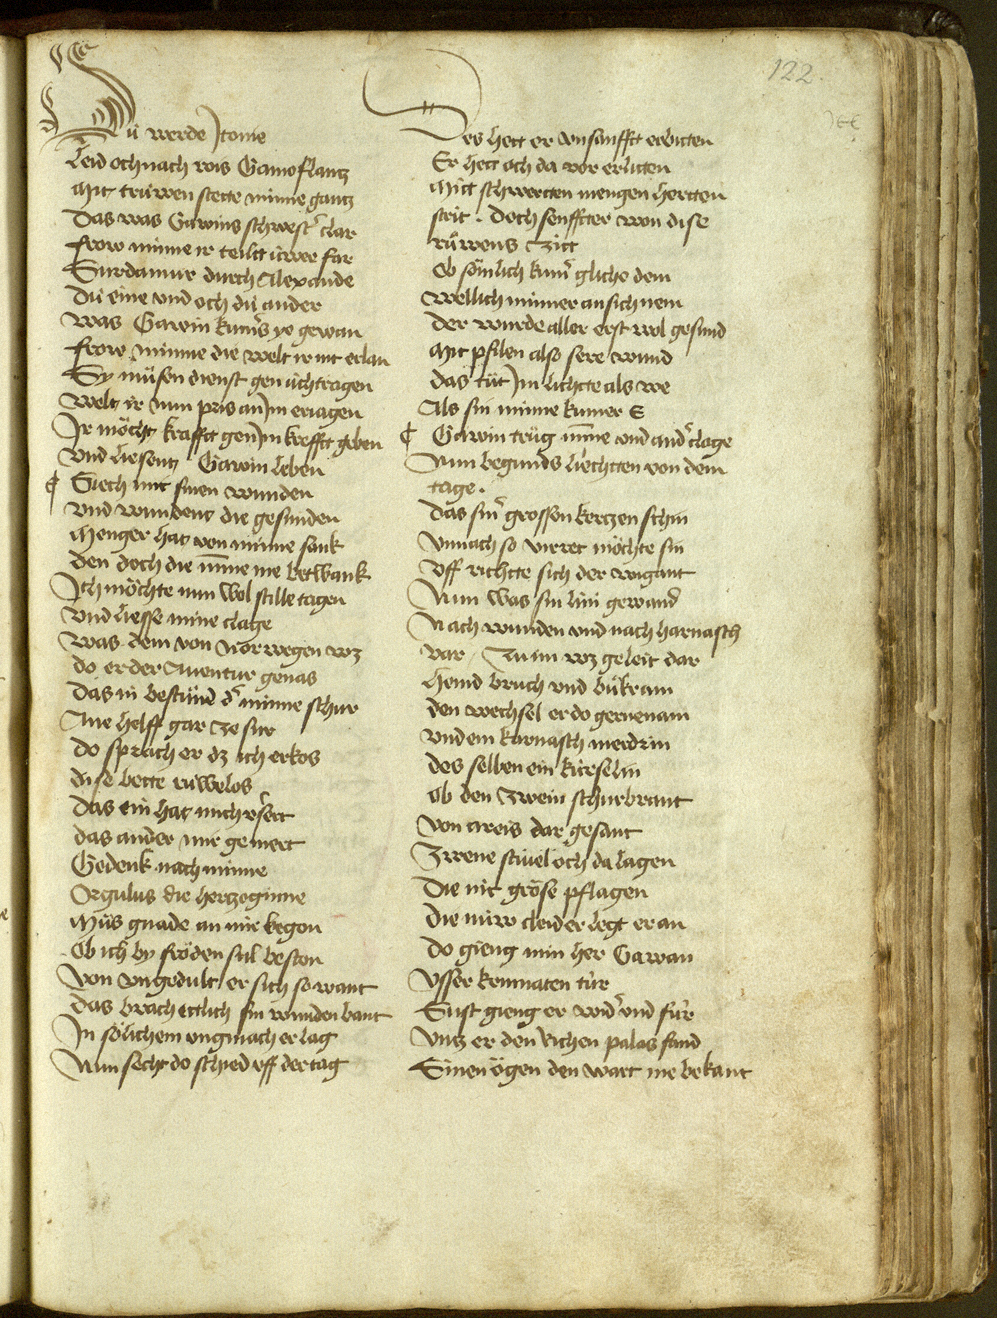 122
Dü werde Jtonie
Leid och nach rois Gamoflantz
Mit trüwen stette minne gantz
Das was Gawins schwestˀ clar
Frow minne ir teilt üwer far
Surdamur durch Alexande
Dü eine vnd och dü ander
Was Gawin kunˀs ye gewan
Frow minne die welt ir nit erlan
Sy müsen dienst gen üch tragen
Welt ir nun pris an Jm eriagen
Jr möcht krafft gen Jm krefft geben
Vnd liesent Gawin leben
¶ Siech mit sinen wunden
Vnd wundent die gesunden
Menger hat von minne sank
Den doch die minne nie betwank
Jch möchte nun wol stille tagen
Vnd liesse mine clage
Was dem von Norwegen wz
do er der Auentur genas
Das in bestünd dˀ minne schur
Ane helff gar ze sur
do sprach er dz ich erkos
dise bette rüwelos
Das ein hat mich vˀsert
das ander mir gemert
Gedenk nach minne
Orgulus die hertzoginne
Müs gnade an mir begon
Ob ich by fröden sul beston
Von vngedult er sich so want
das brach ettlich sin wunden bant
Jn sölichem vngmach er lag
Nun secht do schied vff der tag
Des hett er vnsanfft erbitten
Er hett och da vor erlitten
Mitt schwertten mengen hertten
strit . doch senffter won dise
rüwens zitt
Ob sömlich kumˀ gliche dem
Wellich minner an sich nem
Der wurde aller erst wol gesund
Mit pfilen also sere wund
das tüt Jm lichtte als we
Als sin minne kumer E
¶ Gawin trüg minne vnd andˀ clage
Nun begunds liechtten von dem
tage .
Das sinˀ grossen kertzen schin
Vnnach so virret möchte sin
Vff richtte sich der wigant
Nun was sin lini gewand
Nach wunden vnd nach harnasch
var / Zu im wz geleit dar
Hemd bruch vnd bükram
den wechsel er do gerne nam
Vnd ein karnasch merdrin
des selben ein kürselin
Ob den zwein schurbrant
Von areis dar gesant
Zwene stiuel och da lagen
Die nit gröse pflagen
die nüw cleider legt er an
do gieng min her Gawan
Vsser kemnaten tür
Sust gieng er widˀ vnd für
Vntz er den richen palas fand
Sinen ögen den wart nie bekant